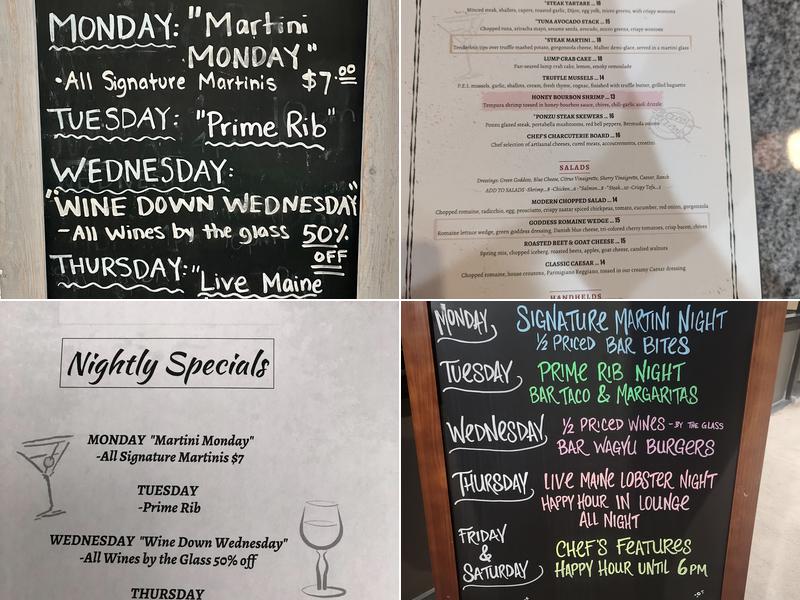 MONDAY: "Martini
MONDAY"
·All Signature Martinis $7.00
TUESDAY: "Prime Rib"
WEDNESDAY:
"WINE DOWN WEDNESDAY"
-All Wines by the glass 50%
OFF
THURSDAY: "Live Maine
*STEAK TARTARE ... 16
Minced steak, shallots, capers, roasted garlic, Dijon, egg yolk, micro greens, with crispy wontons
*TUNA AVOCADO STACK ... 15
Chopped tuna, sriracha mayo, sesame seeds, avocado, micro greens, crispy wontons
*STEAK MARTINI ... 18
Tenderloin tips over truffle mashed potato, gorgonzola cheese, Malbec demi-glace, served in a martini glass
LUMP CRAB CAKE ... 18
Pan-seared lump crab cake, lemon, smoky remoulade
TRUFFLE MUSSELS ... 14
P.E.I. mussels, garlic, shallots, cream, fresh thyme, cognac, finished with truffle butter, grilled baguette
HONEY BOURBON SHRIMP ... 13
Tempura shrimp tossed in honey-bourbon sauce, chives, chili-garlic aioli drizzle
*PONZU STEAK SKEWERS ... 16
Ponzu glazed steak, portabella mushrooms, red bell peppers, Bermuda onions
CHEF'S CHARCUTERIE BOARD ... 16
Chef selection of artisanal cheeses, cured meats, accoutrements, crostini
SALADS
Dressings: Green Goddess, Blue Cheese, Citrus Vinaigrette, Sherry Vinaigrette, Caesar, Ranch
ADD TO SALADS -Shrimp...8 -Chicken...6 -*Salmon...8 -*Steak...10 -Crispy Tofu...5
MODERN CHOPPED SALAD ... 14
Chopped romaine, radicchio, egg, prosciutto, crispy zaatar spiced chickpeas, tomato, cucumber, red onion, gorgonzola
GODDESS ROMAINE WEDGE ... 15
Romaine lettuce wedge, green goddess dressing, Danish blue cheese, tri-colored cherry tomatoes, crisp bacon, chives
ROASTED BEET & GOAT CHEESE ... 15
Spring mix, chopped iceberg, roasted beets, apples, goat cheese, candied walnuts
CLASSIC CAESAR ... 14
Chopped romaine, house croutons, Parmigiana Reggiano, tossed in our creamy Caesar dressing
HANDHELDS
Nightly Specials
MONDAY "Martini Monday"
-All Signature Martinis $7
TUESDAY
-Prime Rib
WEDNESDAY "Wine Down Wednesday"
-All Wines by the Glass 50% off
THURSDAY
MONDAY SIGNATURE MARTINI NIGHT
1/2 PRICED BAR BITES
TUESDAY PRIME RIB NIGHT
BAR TACO & MARGARITAS
WEDNESDAY 1/2 PRICED WINES -BY THE GLASS
BAR WAGYU BURGERS
THURSDAY LIVE MAINE LOBSTER NIGHT
HAPPY HOUR IN LOUNGE
ALL NIGHT
FRIDAY
& CHEF'S FEATURES
SATURDAY HAPPY HOUR UNTIL 6PM